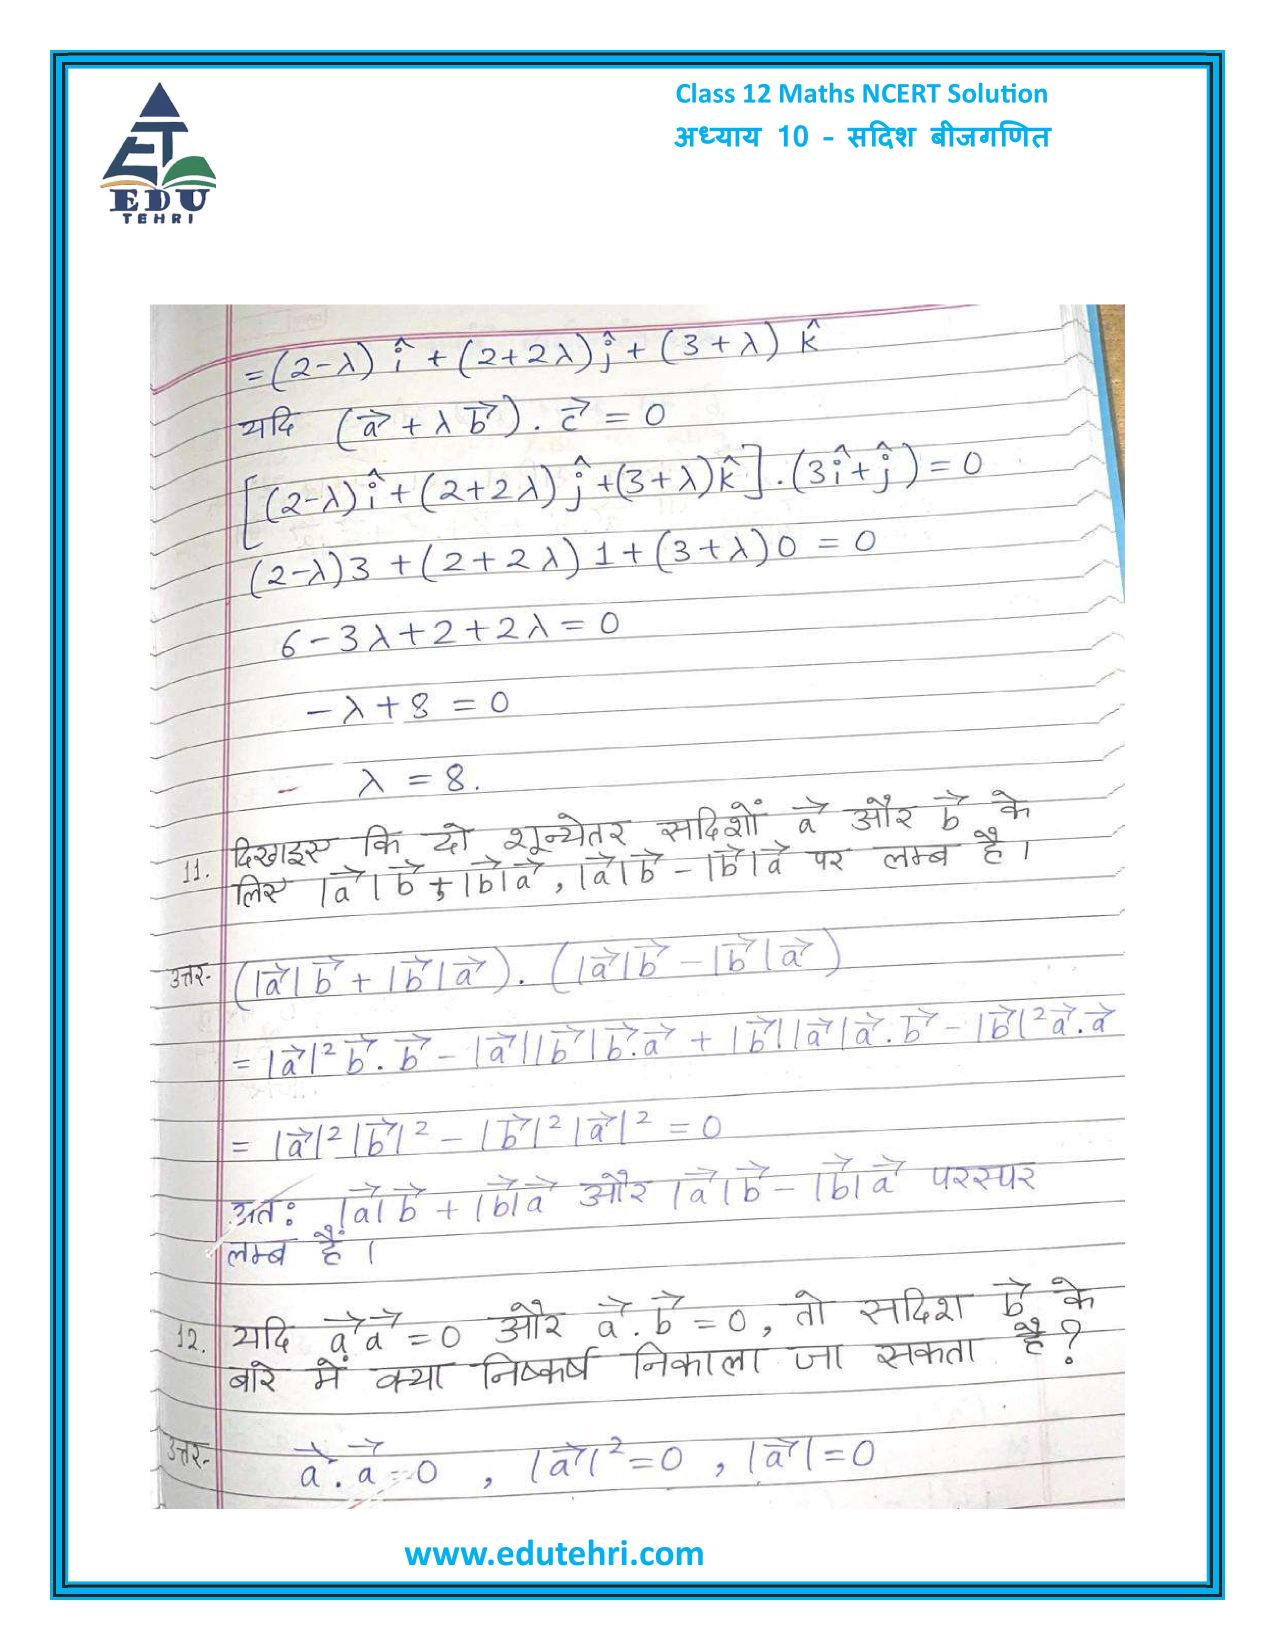 Class 12 Maths NCERT Solution
अध्याय 10 - सदिश बीजगणित
EDU
TEHRI
= (2-λ) î + (2+2λ) ĵ + (3+λ) k̂
यदि (a⃗ + λ b⃗) . c⃗ = 0
[(2-λ) î + (2+2λ) ĵ + (3+λ) k̂] . (3î + ĵ) = 0
(2-λ)3 + (2+2λ)1 + (3+λ)0 = 0
6 - 3λ + 2 + 2λ = 0
- λ + 8 = 0
- λ = 8.
11. दिखाइए कि दो शून्येतर सदिशों a⃗ और b⃗ के
लिए |a⃗| b⃗ + |b⃗| a⃗ , |a⃗| b⃗ - |b⃗| a⃗ पर लम्ब है।
उत्तर- (|a⃗| b⃗ + |b⃗| a⃗) . (|a⃗| b⃗ - |b⃗| a⃗)
= |a⃗|² b⃗ . b⃗ - |a⃗||b⃗| b⃗ . a⃗ + |b⃗||a⃗| a⃗ . b⃗ - |b⃗|² a⃗ . a⃗
= |a⃗|² |b⃗|² - |b⃗|² |a⃗|² = 0
अतः |a⃗| b⃗ + |b⃗| a⃗ और |a⃗| b⃗ - |b⃗| a⃗ परस्पर
लम्ब हैं।
12. यदि a⃗ . a⃗ = 0 और a⃗ . b⃗ = 0, तो सदिश b⃗ के
बारे में क्या निष्कर्ष निकाला जा सकता है?
उत्तर- a⃗ . a⃗ = 0 , |a⃗|² = 0 , |a⃗| = 0
www.edutehri.com